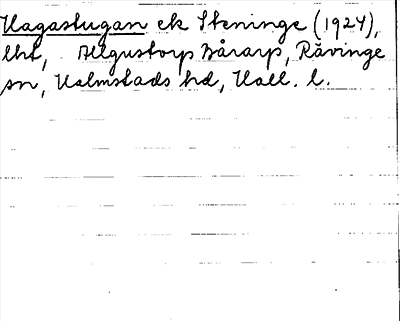 Hagastugan ek Steninge (1924),
lht, Allgustorps Bårarp, Rävinge
sn, Halmstads hd, Hall. l.